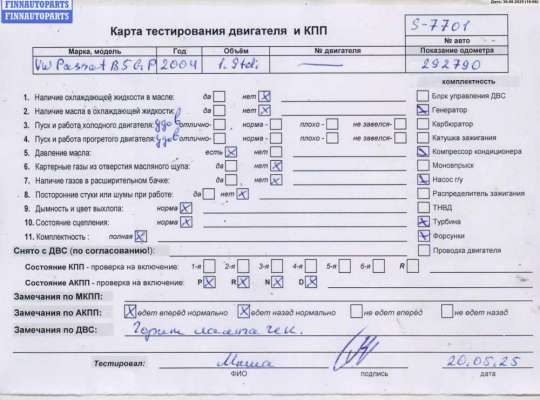 FINNAUTOPARTS
FINNAUTOPARTS
Дата: 30.08.2025
Карта тестирования двигателя и КПП
S-7701
№ авто
Марка, модель Год Объём № двигателя Показание одометра
VW Passat B5 GP 2004 1.9tdi — 292790
комплектность
1. Наличие охлаждающей жидкости в масле: да нет X
2. Наличие масла в охлаждающей жидкости: да нет X
3. Пуск и работа холодного двигателя: удов отлично- норма - плохо - не завелся-
4. Пуск и работа прогретого двигателя: удов отлично- норма - плохо - не завелся-
5. Давление масла: есть X нет
6. Картерные газы из отверстия масляного щупа: да нет X
7. Наличие газов в расширительном бачке: да нет X
8. Посторонние стуки или шумы при работе: да нет X
9. Дымность и цвет выхлопа: норма X
10. Состояние сцепления: норма X
11. Комплектность : полная X
Блок управления ДВС
Генератор
Карбюратор
Катушка зажигания
Компрессор кондиционера
Моновпрыск
Насос г/у
Распределитель зажигания
ТНВД
Турбина
Форсунки
Проводка двигателя
Снято с ДВС (по согласованию!):
Состояние КПП - проверка на включение: 1-я 2-я 3-я 4-я 5-я 6-я R
Состояние АКПП - проверка на включение: P X R X N X D X
Замечания по МКПП:
Замечания по АКПП: X едет вперед нормально X едет назад нормально не едет вперёд не едет назад
Замечания по ДВС: Горит лампа чек.
Тестировал: Миша 20.05.25
ФИО подпись дата